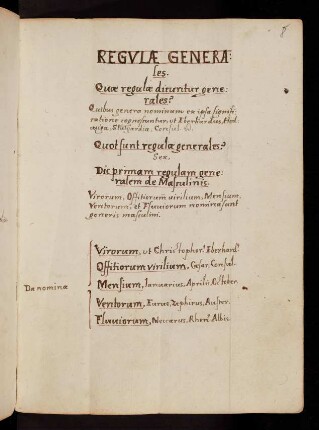 8
REGULÆ GENERA-
les.
Quæ regulæ dicuntur gene-
rales?
Quibus genera nominum ex ipsa signifi-
catione cognoscuntur, ut Eberhardus, Hed-
Consul
Quot sunt regulæ generales?
Sex.
Dic primam regulam gene-
ralem de Masculinis.
Virorum, Offitiorum virilium, Mensium,
Ventorum, et Fluuiorum nomina sunt
generis masculini.
Virorum, ut Christopher, Eberhard
Offitiorum virilium, Cæsar, Consul.
Da nomina
Mensium, Ianuarius, Aprilis, October.
Ventorum, Eurus, Zephirus, Auster.
Fluuiorum, Albis.